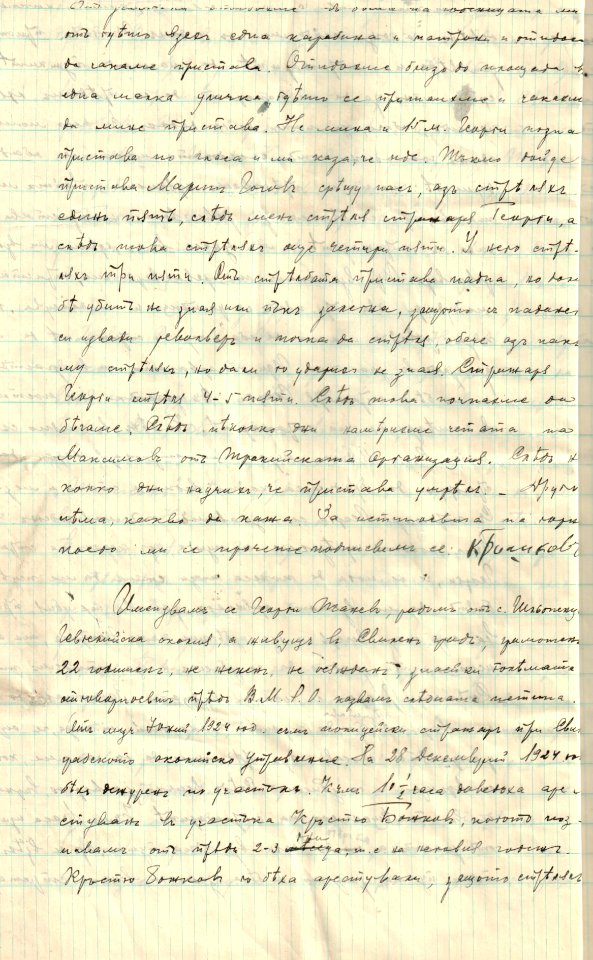 отъ гдѣто взехъ една карабина и патрони и отидохме
да чакаме пристава. Отидохме близо до площада въ
една малка уличка, гдѣто се притаихме и чакахме
да мине пристава. Не мина и 15 м. Георги позна
пристава по гласа и ми каза, че иде. Тъкмо дойде
пристава Марин Гогов срѣщу насъ, азъ стрѣляхъ
единъ пѫть, слѣдъ мен стрѣля стражаря Георги, а
слѣдъ това стрѣляхъ още четири пѫти. У него стрѣ-
ляхъ три пѫти. Отъ стрѣлбата пристава падна, но дали
бѣ убитъ не зная или пъкъ залегна, защото съ падането
си извади револверъ и почна да стрѣля, обаче азъ пакъ
му стрѣляхъ, но дали го ударихъ не зная. Стражаря
Георги стрѣля 4-5 пѫти. Слѣдъ това почнахме да
бѣгаме. Слѣдъ нѣколко дни намѣрихме четата на
Максимовъ отъ Тракийската организация. Слѣдъ нѣ-
колко дни научихъ, че пристава умрѣлъ. – Друго
нѣма, какво да кажа. За истиностьта на горн
ми се прочете подписвамъ се:
Именувамъ се Георги Танев, родомъ отъ с.
Гевгелийска околия, а живущъ въ Свиленъ градъ, грамотенъ
22 годишенъ, не жененъ, не осѫжданъ, знаейки голѣмата
отговорность прѣдъ В.М.Р.О. казвамъ слѣдната истина.
Отъ м-цъ Юний 1924 год. съмъ полицейски стражаръ при Сви-
градското околийско управление. На 28 Декемврий 1924 го
бѣхъ дежуренъ по участъкъ. Къмъ 10 ½ часа доведоха аре-
стуванъ въ участъка Кръстю Божков, когото поз-
навамъ отъ прѣди 2-3 дни, т.е. на новия годенъ.
Кръстю Божковъ го бѣха арестували, защото стрѣлялъ